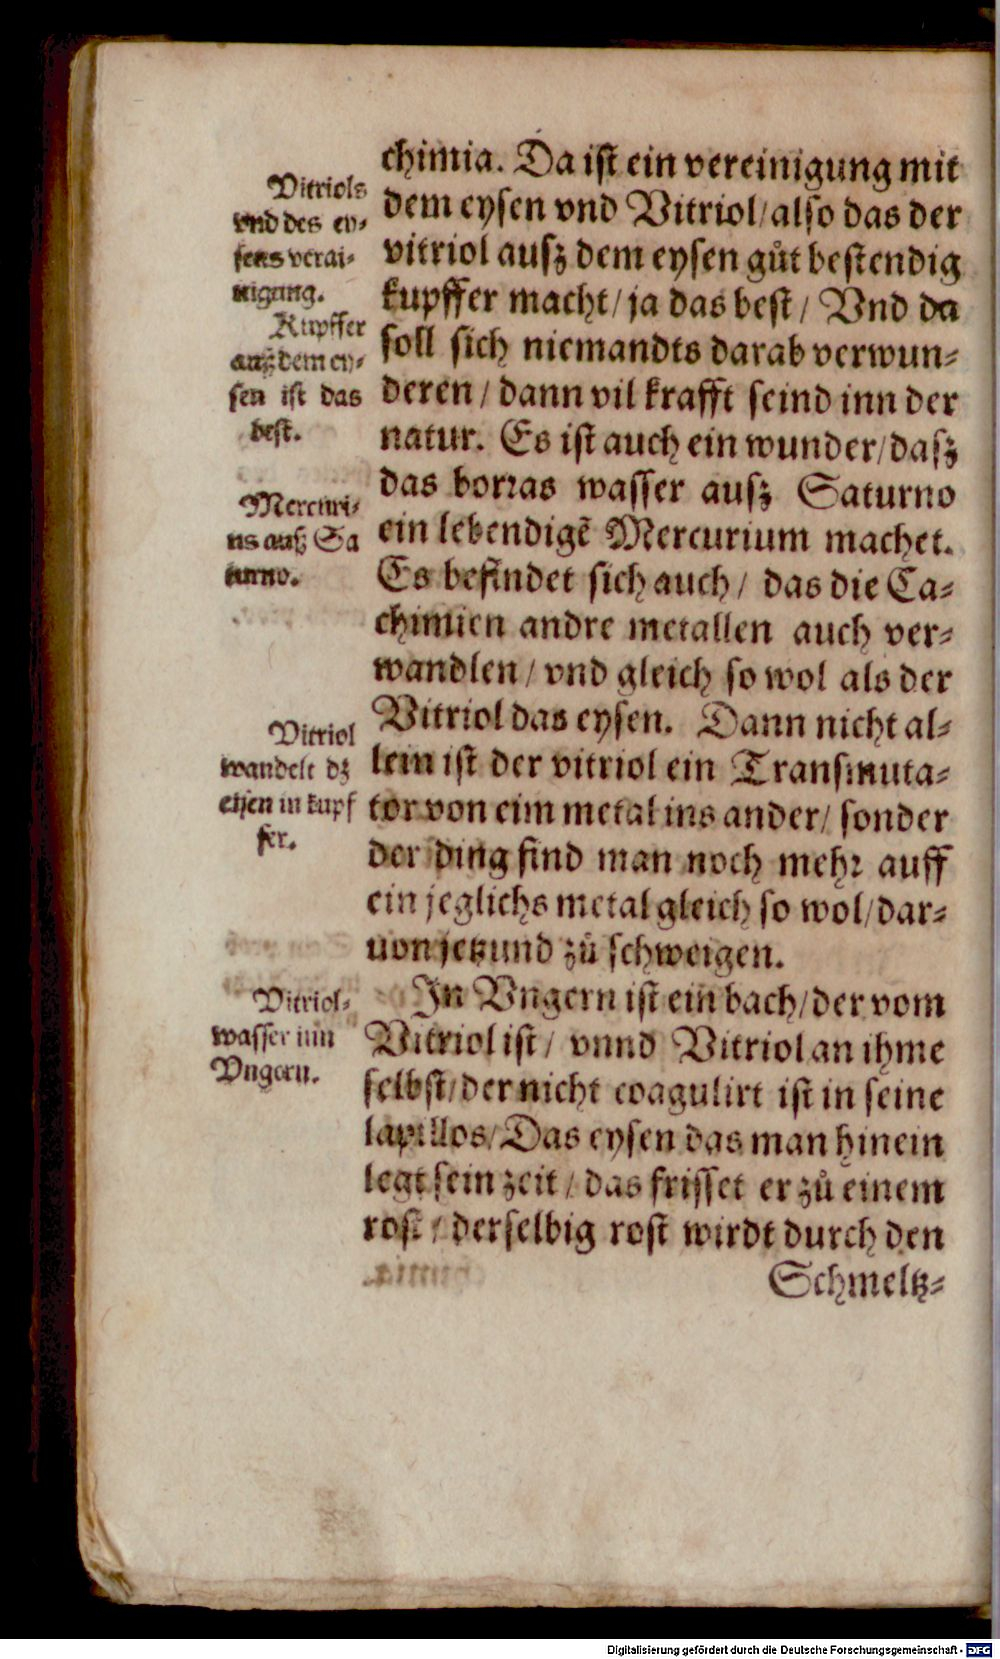 chimia. Da ist ein vereinigung mit
dem eysen vnd Vitriol/also das der
vitriol ausz dem eysen gůt bestendig
kupffer macht/ ja das best/ Vnd da
soll sich niemandts darab verwun-
deren/ dann vil krafft seind inn der
natur. Es ist auch ein wunder/dasz
das borras wasser ausz Saturno
ein lebendigē Mercurium machet.
Es befindet sich auch/ das die Ca-
chimien andre metallen auch ver-
wandlen/ vnd gleich so wol als der
Vitriol das eysen. Dann nicht al-
lein ist der vitriol ein Transmuta-
tor von eim metal ins ander/ sonder
der ding find man noch mehr auff
ein jeglichs metal gleich so wol/dar-
uon jetzund zů schweigen.
In Vngern ist ein bach/der vom
Vitriol ist/ vnnd Vitriol an ihme
selbst/der nicht coagulirt ist in seine
lapillos/Das eysen das man hinein
legt sein zeit/ das frisset er zů einem
rost/ derselbig rost wirdt durch den
Schmeltz-
Vitriols
vnd des ey-
sens verai-
nigung.
Kupffer
auß dem ey-
sen ist das
best.
Mercuri-
us auß Sa
turno.
Vitriol
wandelt dz
eysen in kupf
fer.
Vitriol-
wasser inn
Vngern.
Digitalisierung gefördert durch die Deutsche Forschungsgemeinschaft - DFG